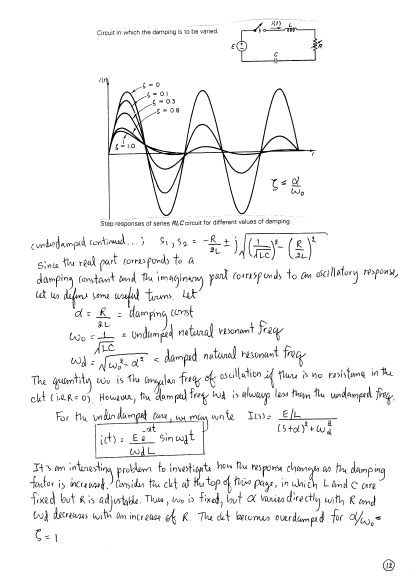 Circuit in which the damping is to be varied.
i(t) L
E R
C
i(t)
ζ=0
ζ=0.1
ζ=0.3
ζ=0.8
ζ=1.0
t
ζ = α/ω₀
Step responses of series RLC circuit for different values of damping.
(underdamped continued...; S₁, S₂ = -R/2L ± j√((1/√LC)² - (R/2L)²
Since the real part corresponds to a
damping constant and the imaginary part corresponds to an oscillatory response,
let us define some useful terms. Let
α = R/2L = damping const
ω₀ = 1/√LC = undamped natural resonant freq
ωd = √ω₀² - α² = damped natural resonant freq
The quantity ω₀ is the angular freq of oscillation if there is no resistance in the
ckt (i.e. R=0). However, the damped freq ωd is always less than the undamped freq.
For the underdamped case, we may write I(s) = E/L / (s+α)² + ωd²
i(t) = E e^-αt / ωd L sin ωdt
It's an interesting problem to investigate how the response changes as the damping
factor is increased. Consider the ckt at the top of this page, in which L and C are
fixed but R is adjustable. Thus, ω₀ is fixed, but α varies directly with R and
ωd decreases with an increase of R. The ckt becomes overdamped for α/ω₀ =
ζ = 1
12